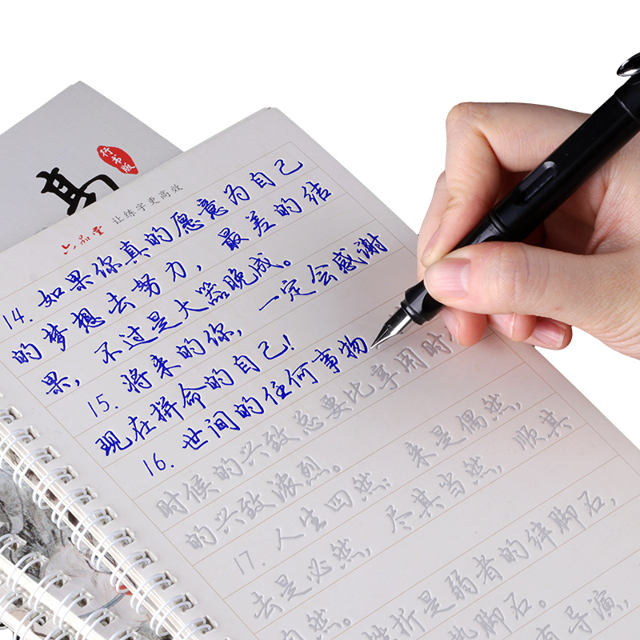 高
行书版
六品堂 让练字更高效
14. 如果你真的愿意为自己
的梦想去努力，最差的结
果，不过是大器晚成。
15. 将来的你，一定会感谢
现在拼命的自己！
16. 世间的任何事物
追求时
时候的兴致总要比享用时
的兴致浓烈。
17. 人生四然：来是偶然，
去是必然，尽其当然，顺其
自然。
挫折是弱者的绊脚石，
脚石。
导演，